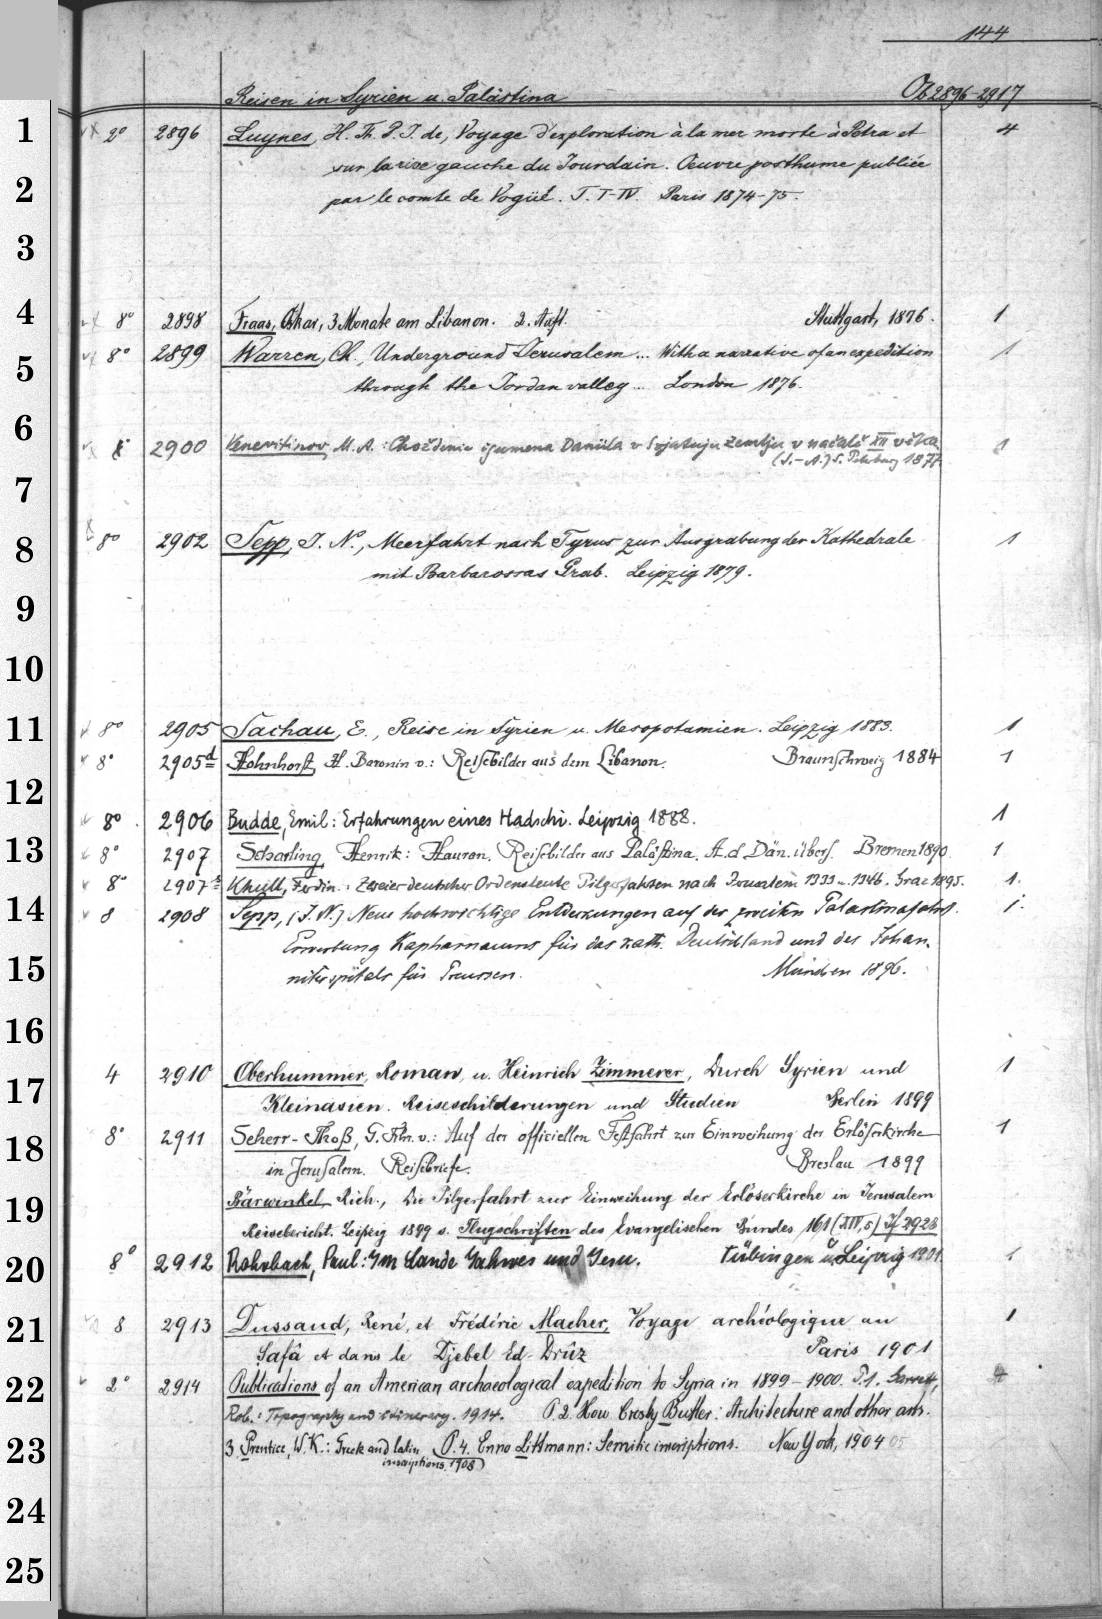 144
Reisen in Syrien u. Palästina Ob 2896-2917
1 2° 2896 Luynes, H. Th. P. J. de, Voyage d'exploration à la mer morte à Petra et 4
sur la rive gauche du Jourdain. Œuvre posthume publiée
2 par le comte de Vogüé. T. I-IV. Paris 1874-75.
3
4 8° 2898 Fraas, Oskar, 3 Monate am Libanon. 2. Aufl. Stuttgart, 1876. 1
5 8° 2899 Warren, Ch., Underground Jerusalem... With a narrative of an expedition 1
through the Jordan valley... London 1876.
6 8° 2900 Venevitinov, M. A.: Choždenie igumena Daniila v Svjatuju zemlju v načalě XII věka 1
(S.-A.) S. Peterburg 1877
7
8 8° 2902 Sepp, J. N., Meerfahrt nach Tyrus zur Ausgrabung der Kathedrale 1
mit Barbarossas Grab. Leipzig 1879.
9
10
11 8° 2905 Sachau, E., Reise in Syrien u. Mesopotamien. Leipzig 1883. 1
8° 2905d Hohnhorst, H. Baronin v.: Reisebilder aus dem Libanon. Braunschweig 1884 1
12
8° 2906 Budde, Emil: Erfahrungen eines Hadschi. Leipzig 1888. 1
13 8° 2907 Scharling, Henrik: Hauran. Reisebilder aus Palästina. A. d. Dän. übers. Bremen 1890. 1
8° 2907 Khull, Ferdin.: Zweier deutscher Ordensleute Pilgerfahrten nach Jerusalem 1333 u. 1346. Graz 1895. 1.
14 8 2908 Sepp, (J. N.) Neue hochwichtige Entdeckungen auf der zweiten Palästinafahrt. 1.
Erwerbung Kapharnaums für das kath. Deutschland und des Johan-
15 niterspitals für Preussen. München 1896.
16
17 4 2910 Oberhummer, Roman, u. Heinrich Zimmerer, Durch Syrien und 1
Kleinasien. Reiseschilderungen und Studien Berlin 1899
18 8° 2911 Scherr-Thoß, G. Frhr. v.: Auf der officiellen Festfahrt zur Einweihung der Erlöserkirche 1
in Jerusalem. Reisebriefe. Breslau 1899
19 Bärwinkel, Rich., Die Pilgerfahrt zur Einweihung der Erlöserkirche in Jerusalem
Reisebericht. Leipzig 1899 s. Flugschriften des Evangelischen Bundes 161 (XIV, 5) If 2923
20 8° 2912 Rohrbach, Paul: Im Lande Jahwes und Jesu. Tübingen u. Leipzig 1901. 1
21 8 2913 Dussaud, René, et Frédéric Macler, Voyage archéologique au 1
Safâ et dans le Djebel Ed-Drûz Paris 1901
22 2° 2914 Publications of an American archaeological expedition to Syria in 1899-1900. P. 1. Garrett, 4
Rob.: Topography and itinerary. 1914. P. 2. How. Crosby Butler: Architecture and other arts.
23 3 Prentice, W. K.: Greek and latin P. 4. Enno Littmann: Semitic inscriptions. New York, 1904 05
inscriptions. 1908
24
25